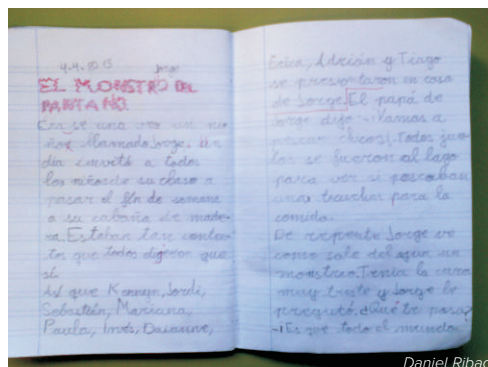 4-4-2015 Jorge
EL MONSTRO DEL
PANTANO.
Erase una vez un ni
ño llamado Jorge. Un
día invitó a todos
los niños de su clase a
pasar el fin de semana
a su cabaña de made-
ra. Estaban tan conten-
tos que todos dijeron que
sí.
Así que Kennyn, Jordi,
Sebastián, Mariana,
Paula, Inés, Dasanne,
Erica, Adrián y Tiago
se presentaron en casa
de Jorge. El papá de
Jorge dijo -¡Vamos a
pescar chicos!. Todos jun
tos se fueron al lago
para ver si pescaban
unas truchas para la
comida.
De repente Jorge ve
como sale del agua un
monstruo. Tenia la cara
muy triste y Jorge le
preguntó. ¿Qué te pasa?
-¡Es que todo el mundo
Daniel Ribao